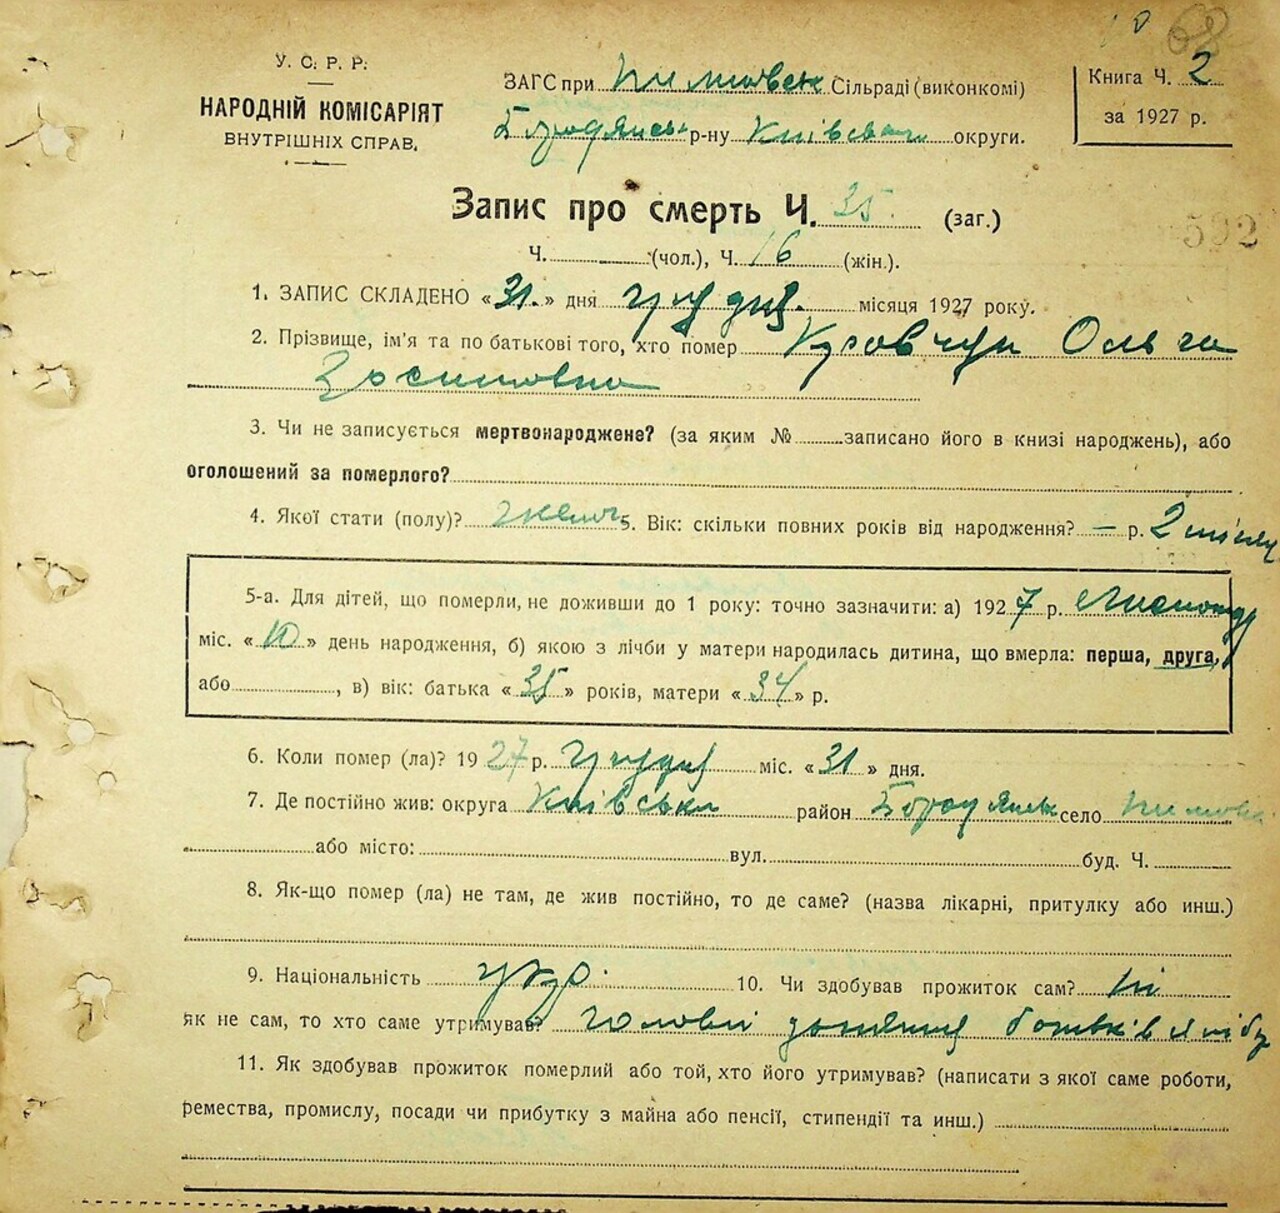 У. С. Р. Р.
НАРОДНІЙ КОМІСАРІЯТ
ВНУТРІШНІХ СПРАВ.
ЗАГС при Сільраді (виконкомі)
р-ну округи.
Книга Ч. 2
за 1927 р.
Запис про смерть Ч. 35 (заг.)
592
Ч. (чол.), Ч. 16 (жін.).
1. ЗАПИС СКЛАДЕНО «31.» дня грудня місяця 1927 року.
2. Прізвище, ім'я та по батькові того, хто помер Кравчук Ольга
3. Чи не записується мертвонароджене? (за яким № записано його в книзі народжень), або
оголошений за померлого?
4. Якої стати (полу)? 5. Вік: скільки повних років від народження? — р. 2
5-а. Для дітей, що померли, не доживши до 1 року: точно зазначити: а) 1927 р.
міс. «10» день народження, б) якою з лічби у матери народилась дитина, що вмерла: перша, друга,
або , в) вік: батька «35» років, матери «34» р.
6. Коли помер (ла)? 1927 р. грудня міс. «31» дня.
7. Де постійно жив: округа Київська район село
або місто: вул. буд. Ч.
8. Як-що помер (ла) не там, де жив постійно, то де саме? (назва лікарні, притулку або инш.)
9. Національність укр. 10. Чи здобував прожиток сам? ні
як не сам, то хто саме утримував?
11. Як здобував прожиток померлий або той, хто його утримував? (написати з якої саме роботи,
ремества, промислу, посади чи прибутку з майна або пенсії, стипендії та инш.)